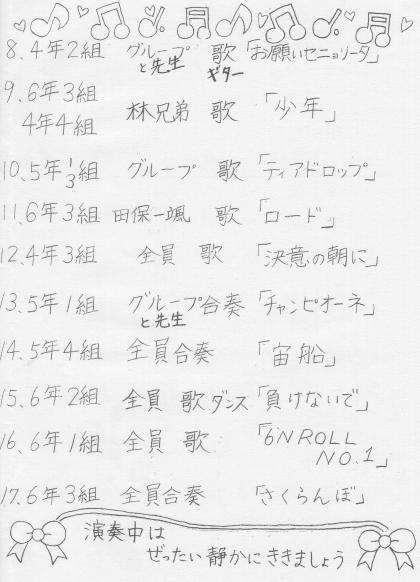 8. 4年2組 グループと先生 歌 ギター 「お願いセニョリータ」
9. 6年3組
4年4組 林兄弟 歌 「少年」
10. 5年1/3組 グループ 歌 「ティアドロップ」
11. 6年3組 田保一颯 歌 「ロード」
12. 4年3組 全員 歌 「決意の朝に」
13. 5年1組 グループと先生 合奏 「チャンピオーネ」
14. 5年4組 全員合奏 「宙船」
15. 6年2組 全員 歌 ダンス 「負けないで」
16. 6年1組 全員 歌 「6NROLL
NO.1」
17. 6年3組 全員合奏 「さくらんぼ」
演奏中は
ぜったい静かにききましょう